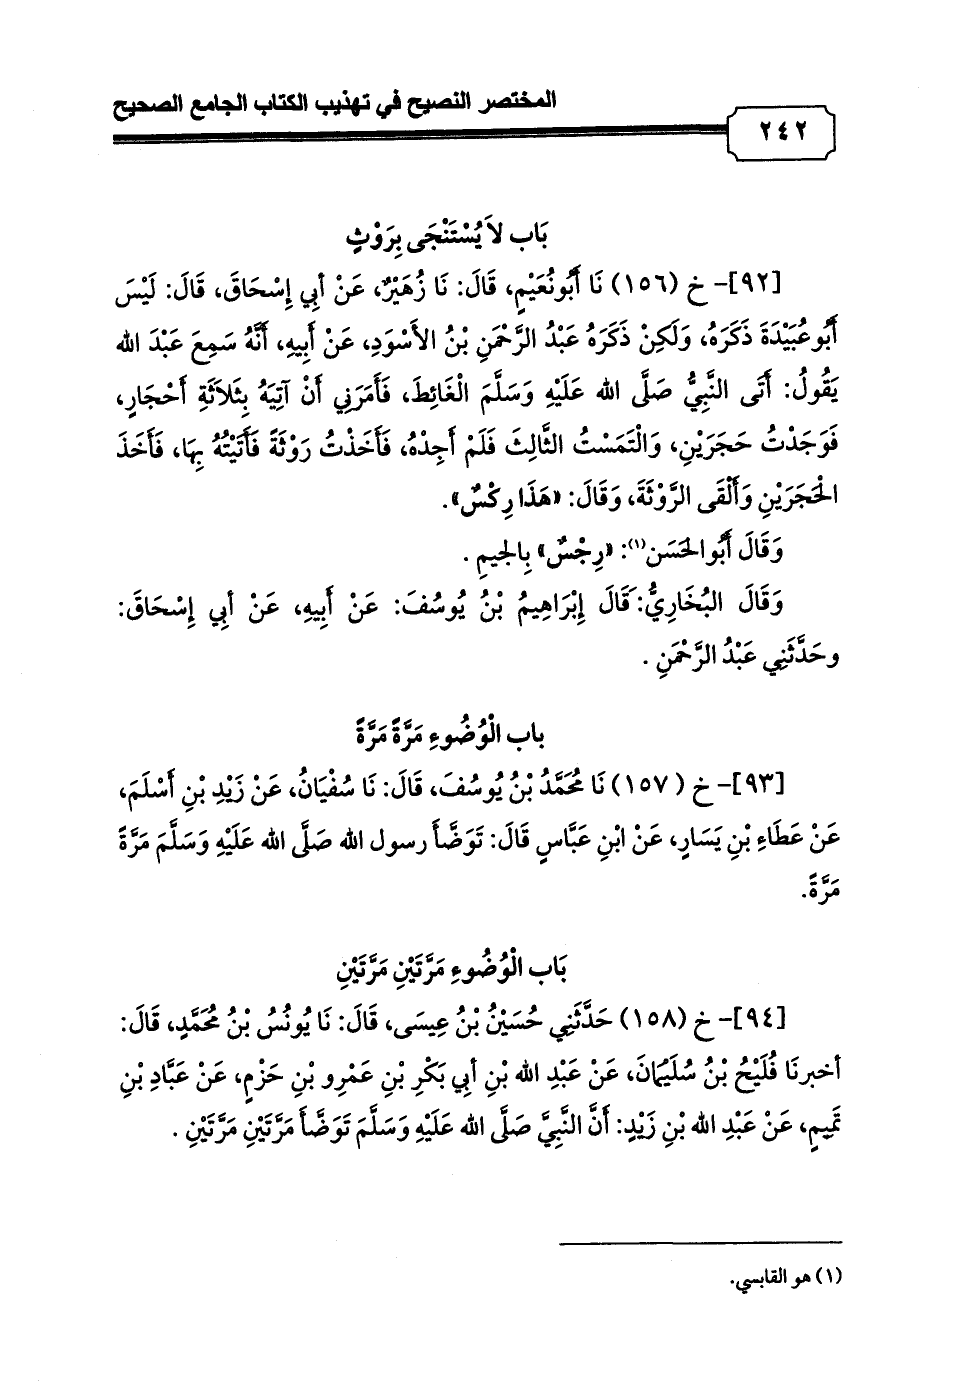 المختصر النصيح في تهذيب الكتاب الجامع الصحيح
٢٤٢
بَاب لاَ يُسْتَنْجَى بِرَوْثٍ
[٩٢]- خ (١٥٦) نَا أَبُونُعَيْمٍ، قَالَ: نَا زُهَيْرٌ، عَنْ أَبِي إِسْحَاقَ، قَالَ: لَيْسَ
أَبُوعُبَيْدَةَ ذَكَرَهُ، وَلَكِنْ ذَكَرَهُ عَبْدُ الرَّحْمَنِ بْنُ الأَسْوَدِ، عَنْ أَبِيهِ، أَنَّهُ سَمِعَ عَبْدَ الله
يَقُولُ: أَتَى النَّبِيُّ صَلَّى الله عَلَيْهِ وَسَلَّمَ الْغَائِطَ، فَأَمَرَنِي أَنْ آتِيَهُ بِثَلاَثَةِ أَحْجَارٍ،
فَوَجَدْتُ حَجَرَيْنِ، وَالْتَمَسْتُ الثَّالِثَ فَلَمْ أَجِدْهُ، فَأَخَذْتُ رَوْثَةً فَأَتَيْتُهُ بِهَا، فَأَخَذَ
الْحَجَرَيْنِ وَأَلْقَى الرَّوْثَةَ، وَقَالَ: «هَذَا رِكْسٌ».
وَقَالَ أَبُوالحَسَنِ(١): «رِجْسٌ» بِالجِيمِ.
وَقَالَ البُخَارِيُّ: قَالَ إِبْرَاهِيمُ بْنُ يُوسُفَ: عَنْ أَبِيهِ، عَنْ أَبِي إِسْحَاقَ:
وحَدَّثَنِي عَبْدُ الرَّحْمَنِ.
باب الْوُضُوءِ مَرَّةً مَرَّةً
[٩٣]- خ (١٥٧) نَا مُحَمَّدُ بْنُ يُوسُفَ، قَالَ: نَا سُفْيَانُ، عَنْ زَيْدِ بْنِ أَسْلَمَ،
عَنْ عَطَاءِ بْنِ يَسَارٍ، عَنْ ابْنِ عَبَّاسٍ قَالَ: تَوَضَّأَ رسول الله صَلَّى الله عَلَيْهِ وَسَلَّمَ مَرَّةً
مَرَّةً.
بَاب الْوُضُوءِ مَرَّتَيْنِ مَرَّتَيْنِ
[٩٤]- خ (١٥٨) حَدَّثَنِي حُسَيْنُ بْنُ عِيسَى، قَالَ: نَا يُونُسُ بْنُ مُحَمَّدٍ، قَالَ:
أخبرنَا فُلَيْحُ بْنُ سُلَيْمَانَ، عَنْ عَبْدِ الله بْنِ أَبِي بَكْرِ بْنِ عَمْرِو بْنِ حَزْمٍ، عَنْ عَبَّادِ بْنِ
تَمِيمٍ، عَنْ عَبْدِ الله بْنِ زَيْدٍ: أَنَّ النَّبِيَّ صَلَّى الله عَلَيْهِ وَسَلَّمَ تَوَضَّأَ مَرَّتَيْنِ مَرَّتَيْنِ.
(١) هو القابسي.